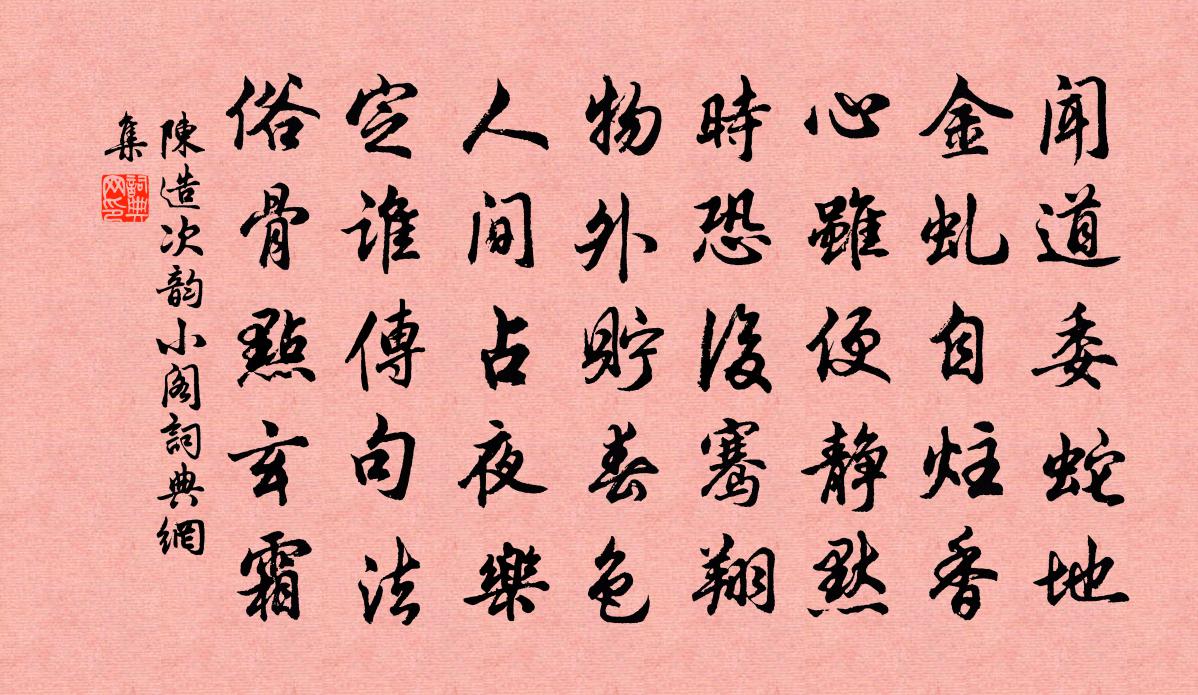 聞道委蛇地
金虬自炷香
心雖便静默
時恐復騫翔
物外貯春色
人間占夜樂
定誰傳句法
俗骨點玄霜
陳造次韵小阁詞典網
集
詞典
网印